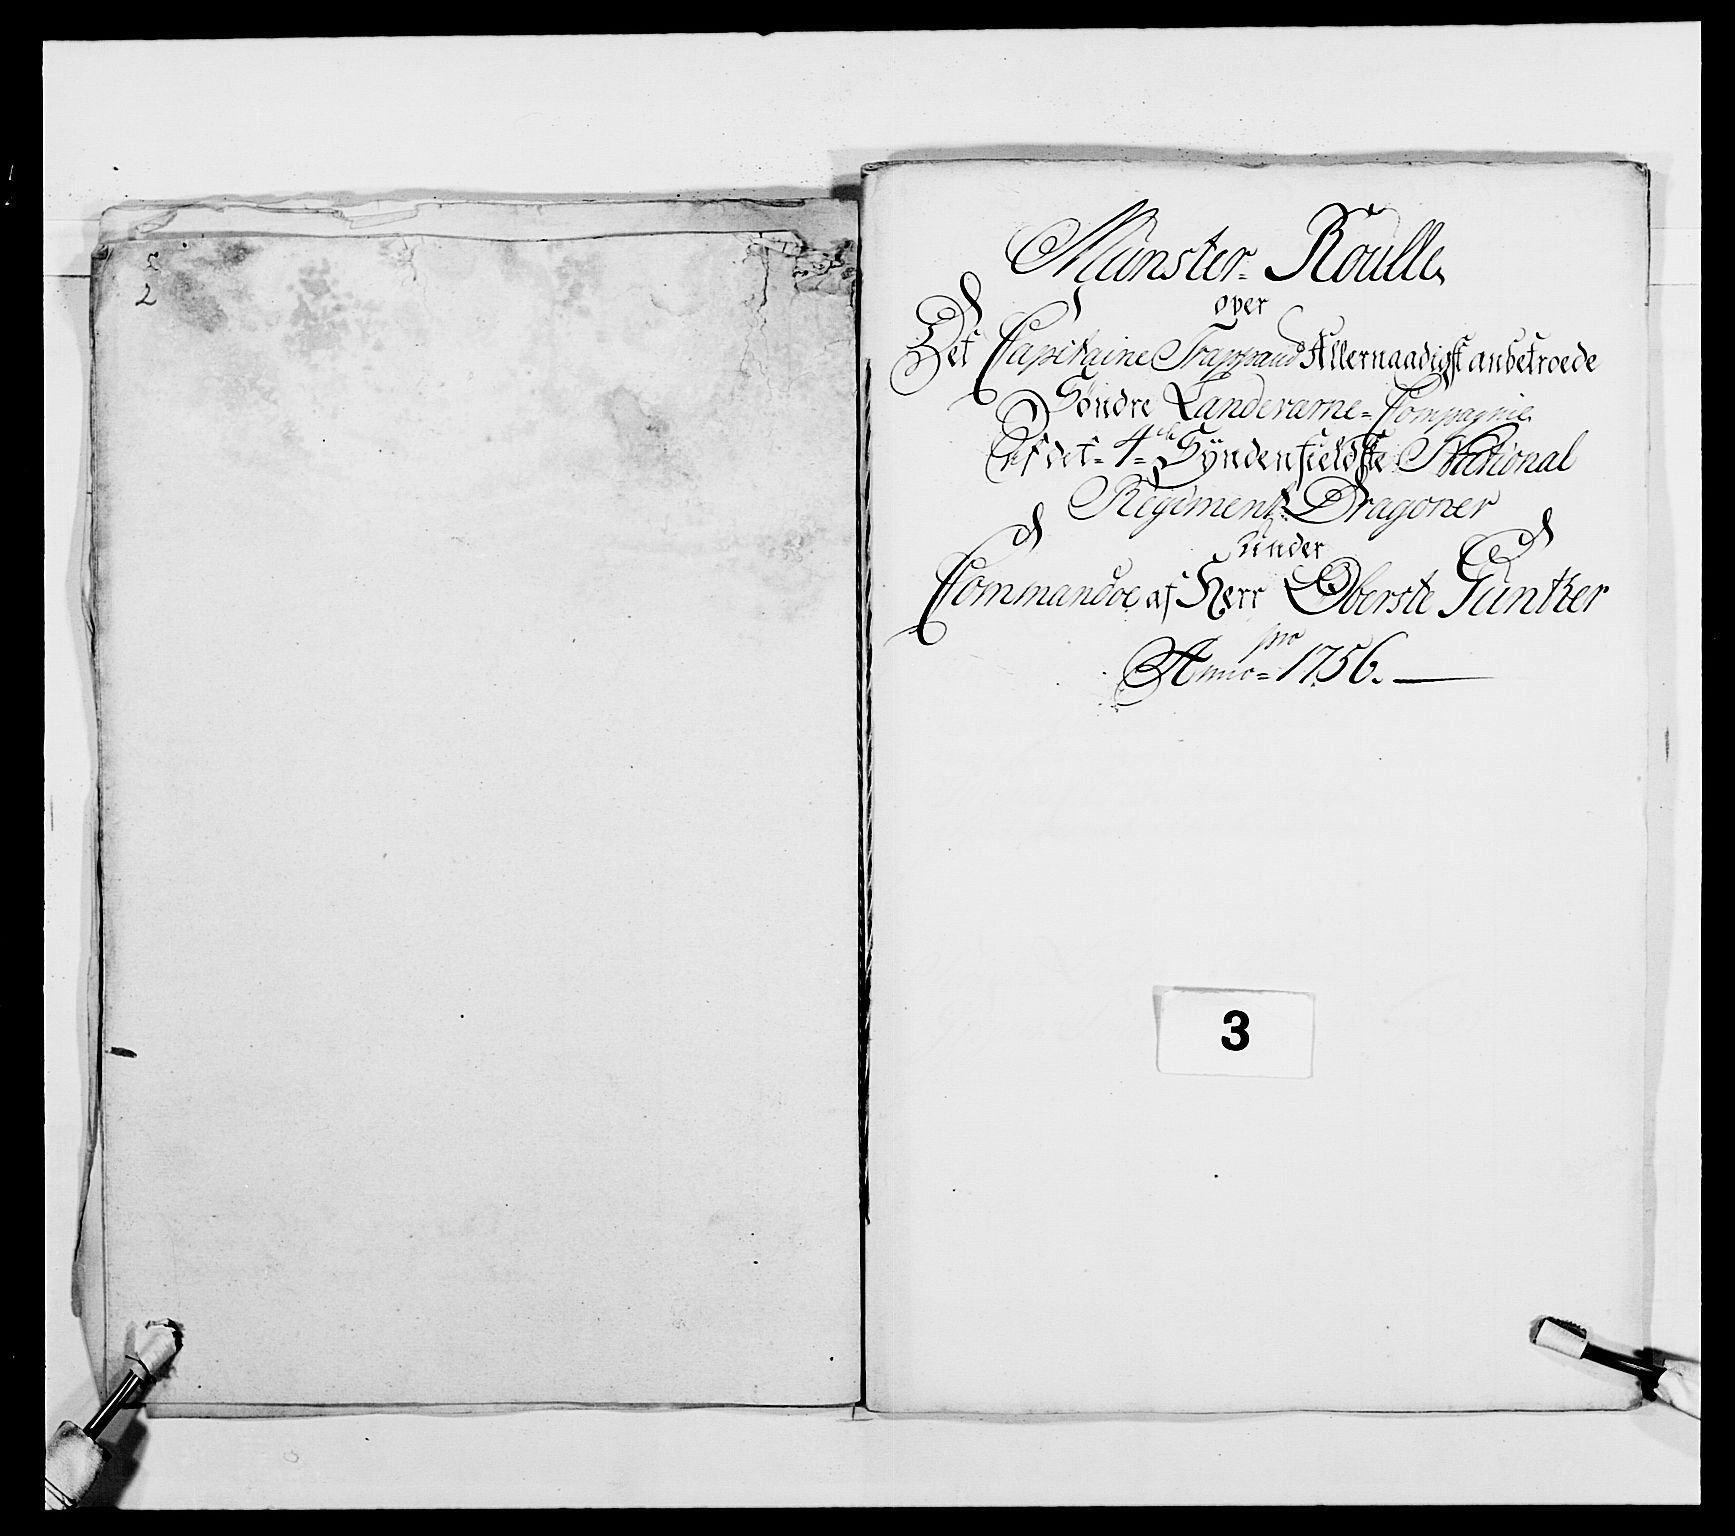 5
2
Mönster- Roulle
over
Det Capitaine Frappaud Allernaadigst anbetroede
Søndre Landerarne= Compagnie
Af det= 4de= Syndenfieldske National
Regiment Dragoner
under
Commandoe af Herr Oberste Günther
pro
Anno= 1756.
3